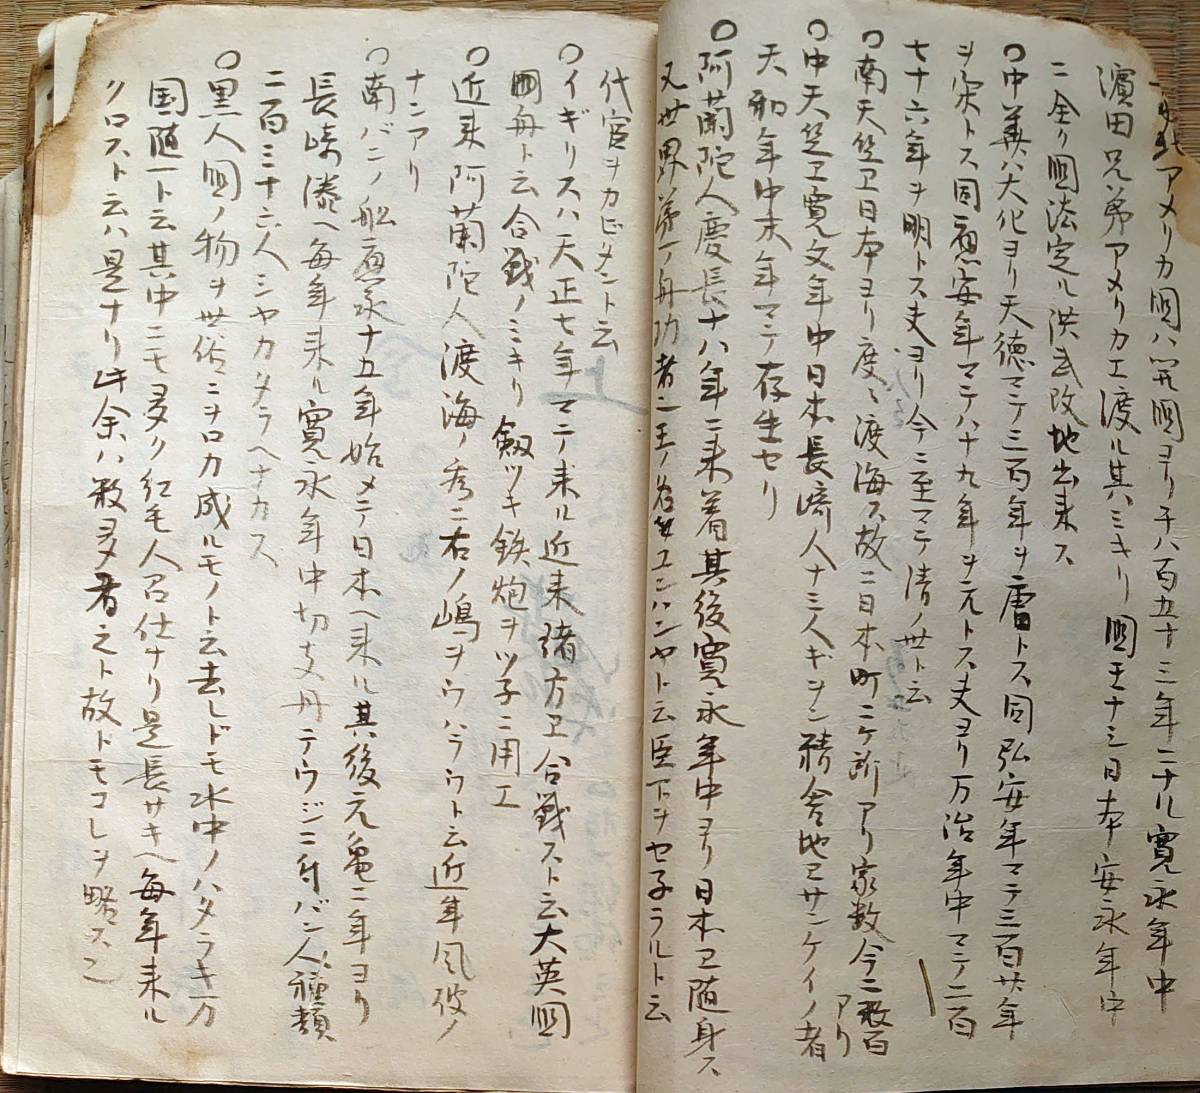 アメリカ國ハ開國ヨリ千八百五十三年ニナル寛永年中
濱田兄弟アメリカエ渡ル其ミキリ國王ナシ日本安永年中
ニ全ク國法定ル洪武改地出来ス
〇中華ハ大化ヨリ天徳マテ三百年ヲ唐トス同弘安年マテ三百廿年
ヲ宋トス同應安年マテハ十九年ヲ元トス夫ヨリ万治年中マテ二百
七十六年ヲ明トス夫ヨリ今ニ至マテ清ノ世ト云
〇南天竺エ日本ヨリ度々渡海ス故ニ日本町ニケ所アリ家数今ニ数百アリ
〇中天竺エ寛文年中日本長崎人十三人ギヲン精舎地エサンケイノ者
天和年中末年マテ存生セリ
〇阿蘭陀人慶長十八年ニ来着其後寛永年中ヨリ日本エ随身ス
又世界第一ノ舟功者ニ王ノ名セエンハンヤト云臣下ヲセ子ラルト云
代官ヲカピタント云
〇イギリスハ天正七年マテ来ル近来諸方エ合戦スト云大英國
國舟ト云合戦ノミキリ劔ツキ鉄炮ヲツ子ニ用エ
近来阿蘭陀人渡海ノ秀ニ右ノ嶋ヲウハラウト云近年風破ノ
ナンアリ
〇南バンノ舩應永十五年始メテ日本ヘ来ル其後元亀二年ヨリ
長崎湊ヘ毎年来ル寛永年中切支丹テウジニ付バン人種類
二百三十六人シヤカタラヘナカス
〇黒人國ノ物ヲ世俗ニヲロカ成ルモノト云去レドモ水中ノハタラキ万
国随一ト云其中ニモ多ク紅毛人召仕ナリ是長サキヘ毎年来ル
クロスト云ハ是ナリ此余ハ数多有之ト故トモコレヲ略ス